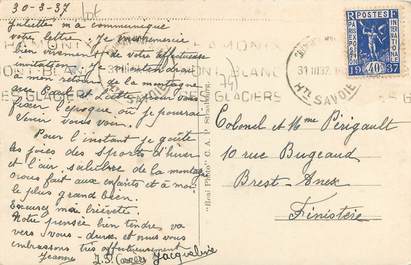 30-3-37
Juliette m'a communiqué
votre lettre. Je vous remercie
bien vivement de votre affectueuse
invitation. Je attendrai
mon retour de la montagne
pour fixer
l'époque où je pourrai
venir vous voir.
Pour l'instant je goûte
les joies des Sports d'hiver
et l'air salubre de la montagne
nous fait aux enfants et à moi
le plus grand bien.
Excusez ma brièveté.
Notre pensée bien tendre va
vers vous-deux et nous vous
embrassons très affectueusement
Jeanne J.P. Jacqueline
CHAMONIX
MONT-BLANC
SES GLACIERS
31 III 37
HTE SAVOIE
POSTES
PARIS EXPOSITION INTERNATIONALE
19 40c 37
Colonel et Mme Périgault
10 rue Bugeaud
Brest-Anex
Finistère